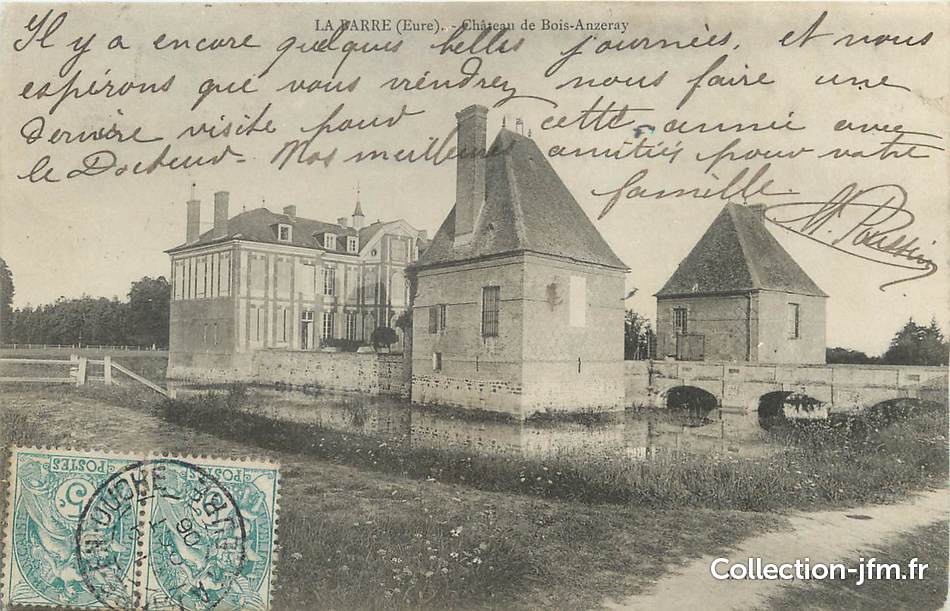 LA BARRE (Eure). - Château de Bois-Anzeray
Il y a encore quelques belles journées, et nous
espérons que vous viendrez nous faire une
Dernière visite pour cette année avec
le Docteur. Nos meilleures amitiés pour votre
famille.
Poussin
POSTES POSTES
5
06
Collection-jfm.fr